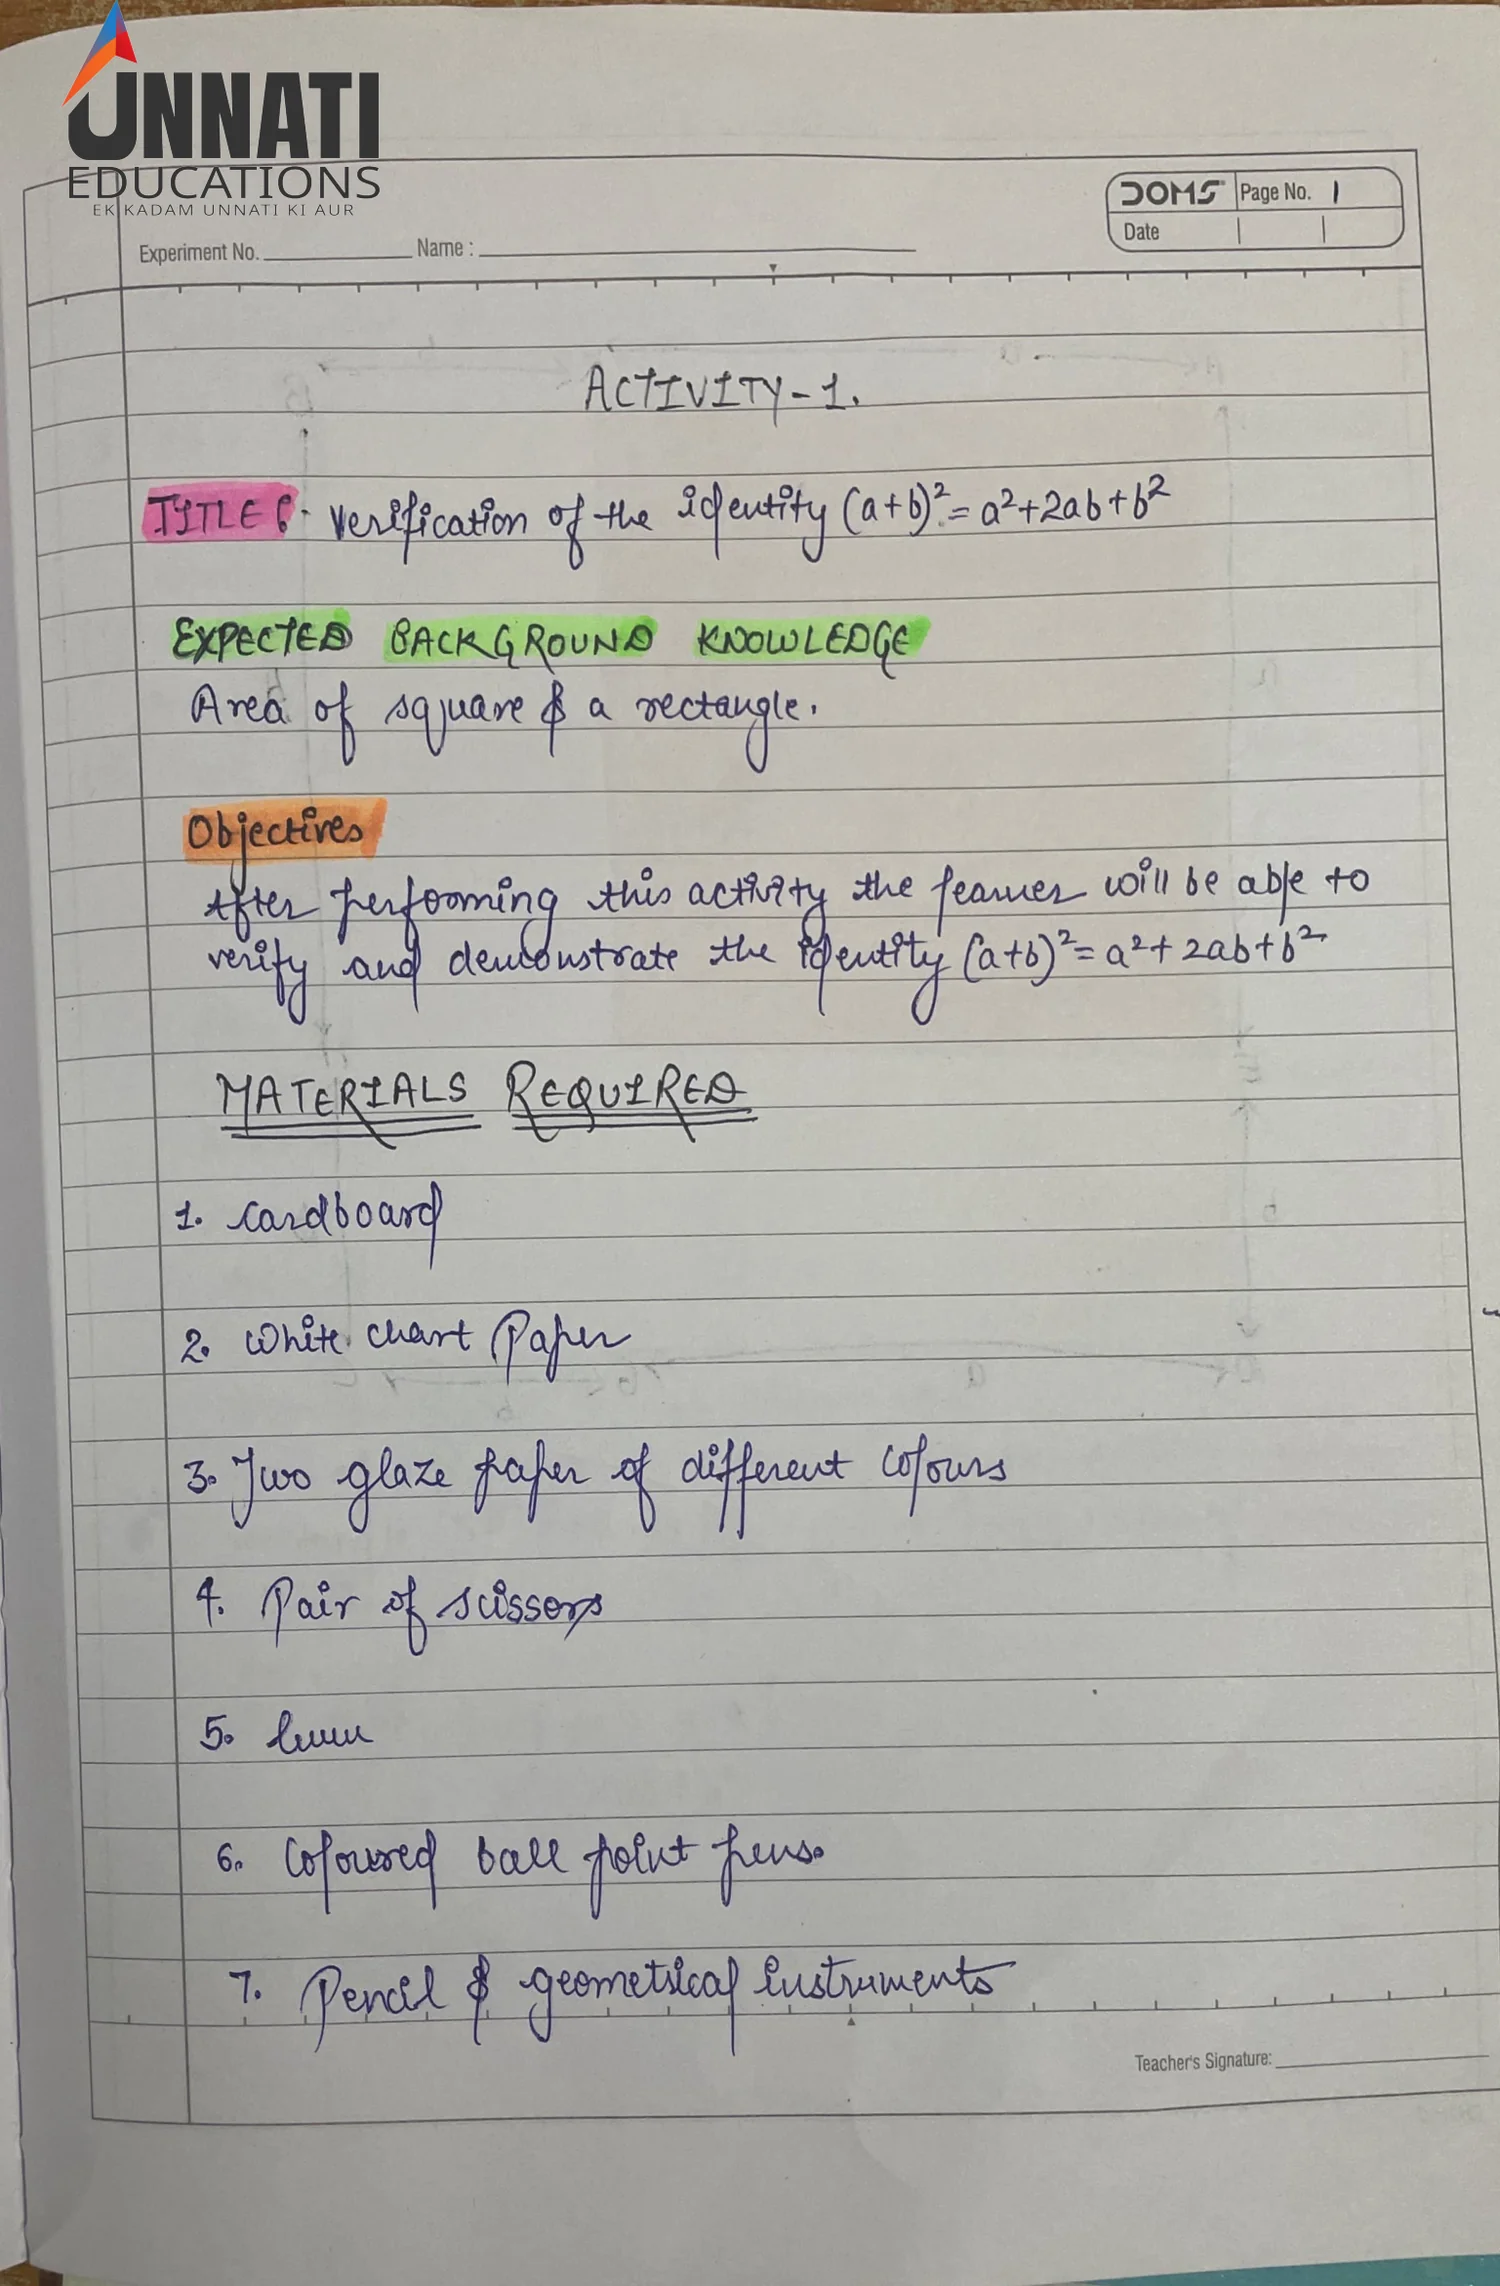 UNNATI
EDUCATIONS
EK KADAM UNNATI KI AUR
DOMS Page No. 1
Date
Experiment No. Name :
ACTIVITY-1.
TITLE :- Verification of the identity (a+b)²= a²+2ab+b²
EXPECTED BACKGROUND KNOWLEDGE
Area of square & a rectangle.
Objectives
After performing this activity the learner will be able to
verify and demonstrate the identity (a+b)²= a²+ 2ab+b²
MATERIALS REQUIRED
1. Cardboard
2. White chart Paper
3. Two glaze paper of different colours
4. Pair of scissors
5.
6. Coloured ball point pens.
7. Pencil & geometrical instruments
Teacher's Signature: